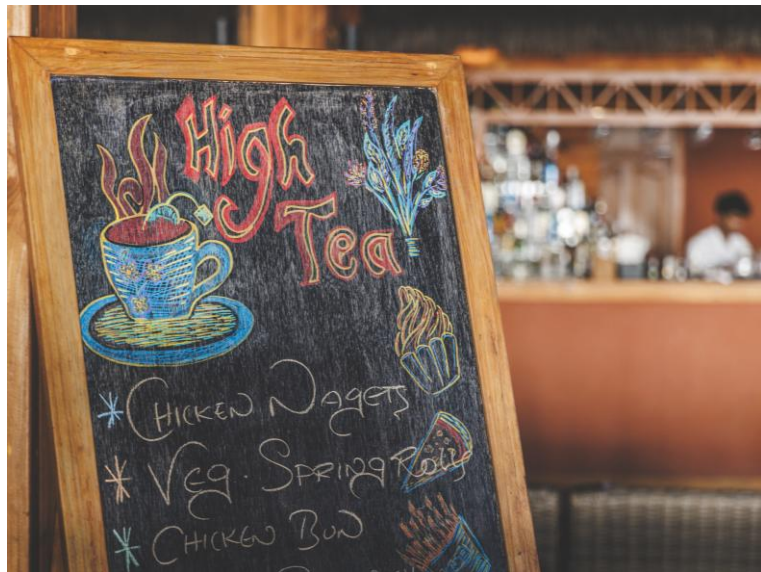 High
Tea
CHICKEN NAGETS
VEG. SPRING ROLLS
CHICKEN BUN